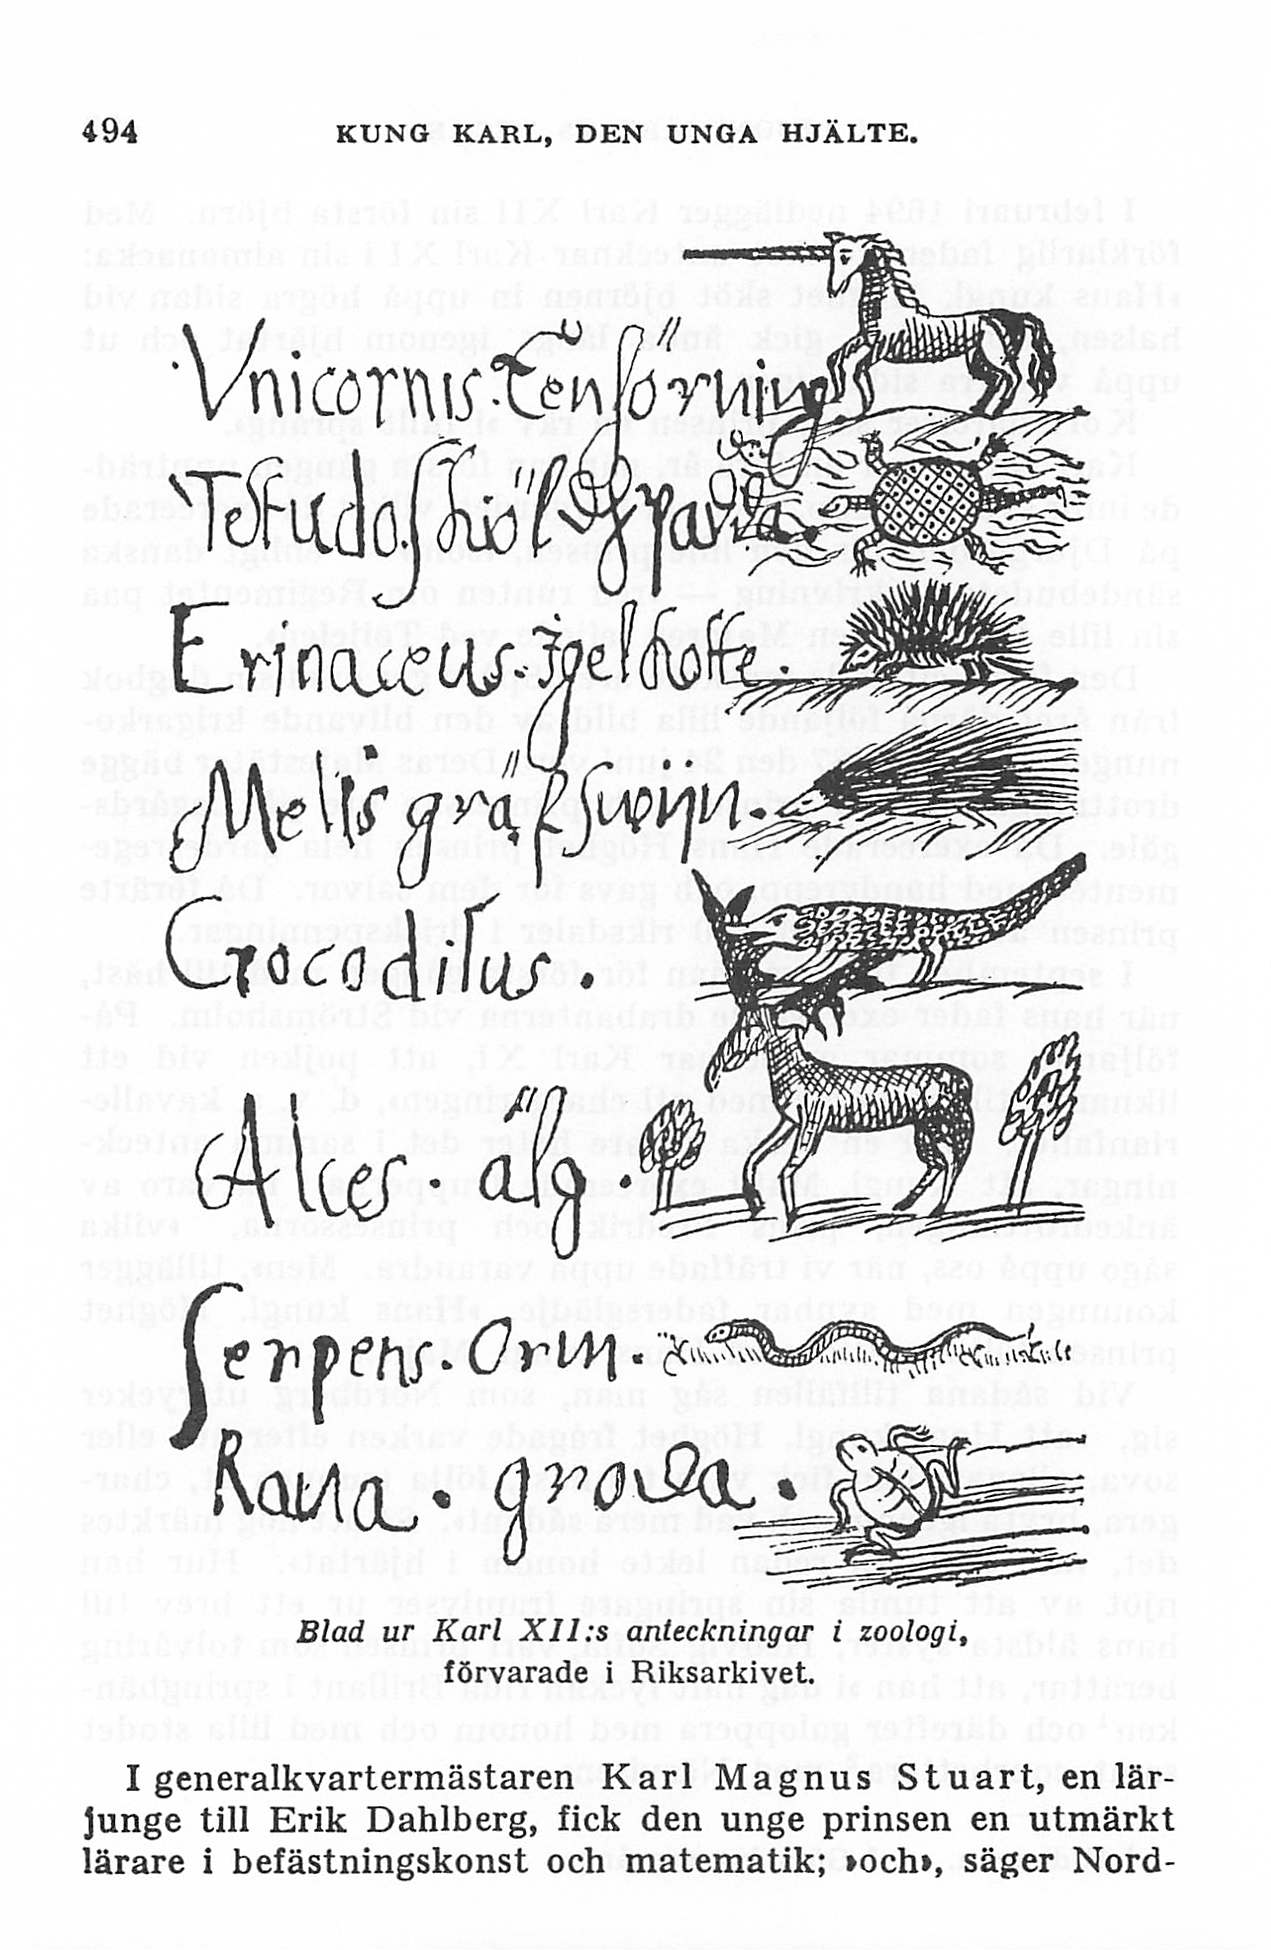 494 KUNG KARL, DEN UNGA HJÄLTE.
Vnicornis.
Testudo. Skiölpadda.
Erinaceus. Jgelkotte.
Melis gräfswijn.
Crocodilus.
Alces. älg.
Serpens. Orm.
Rana. groea.
Blad ur Karl XII:s anteckningar i zoologi,
förvarade i Riksarkivet.
I generalkvartermästaren Karl Magnus Stuart, en lär-
junge till Erik Dahlberg, fick den unge prinsen en utmärkt
lärare i befästningskonst och matematik; »och», säger Nord-